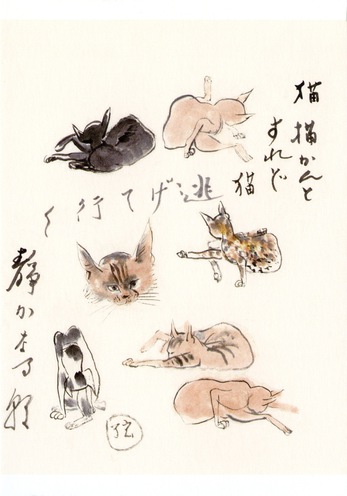 猫描かんと
すれど
猫
逃げて行く
静かなる